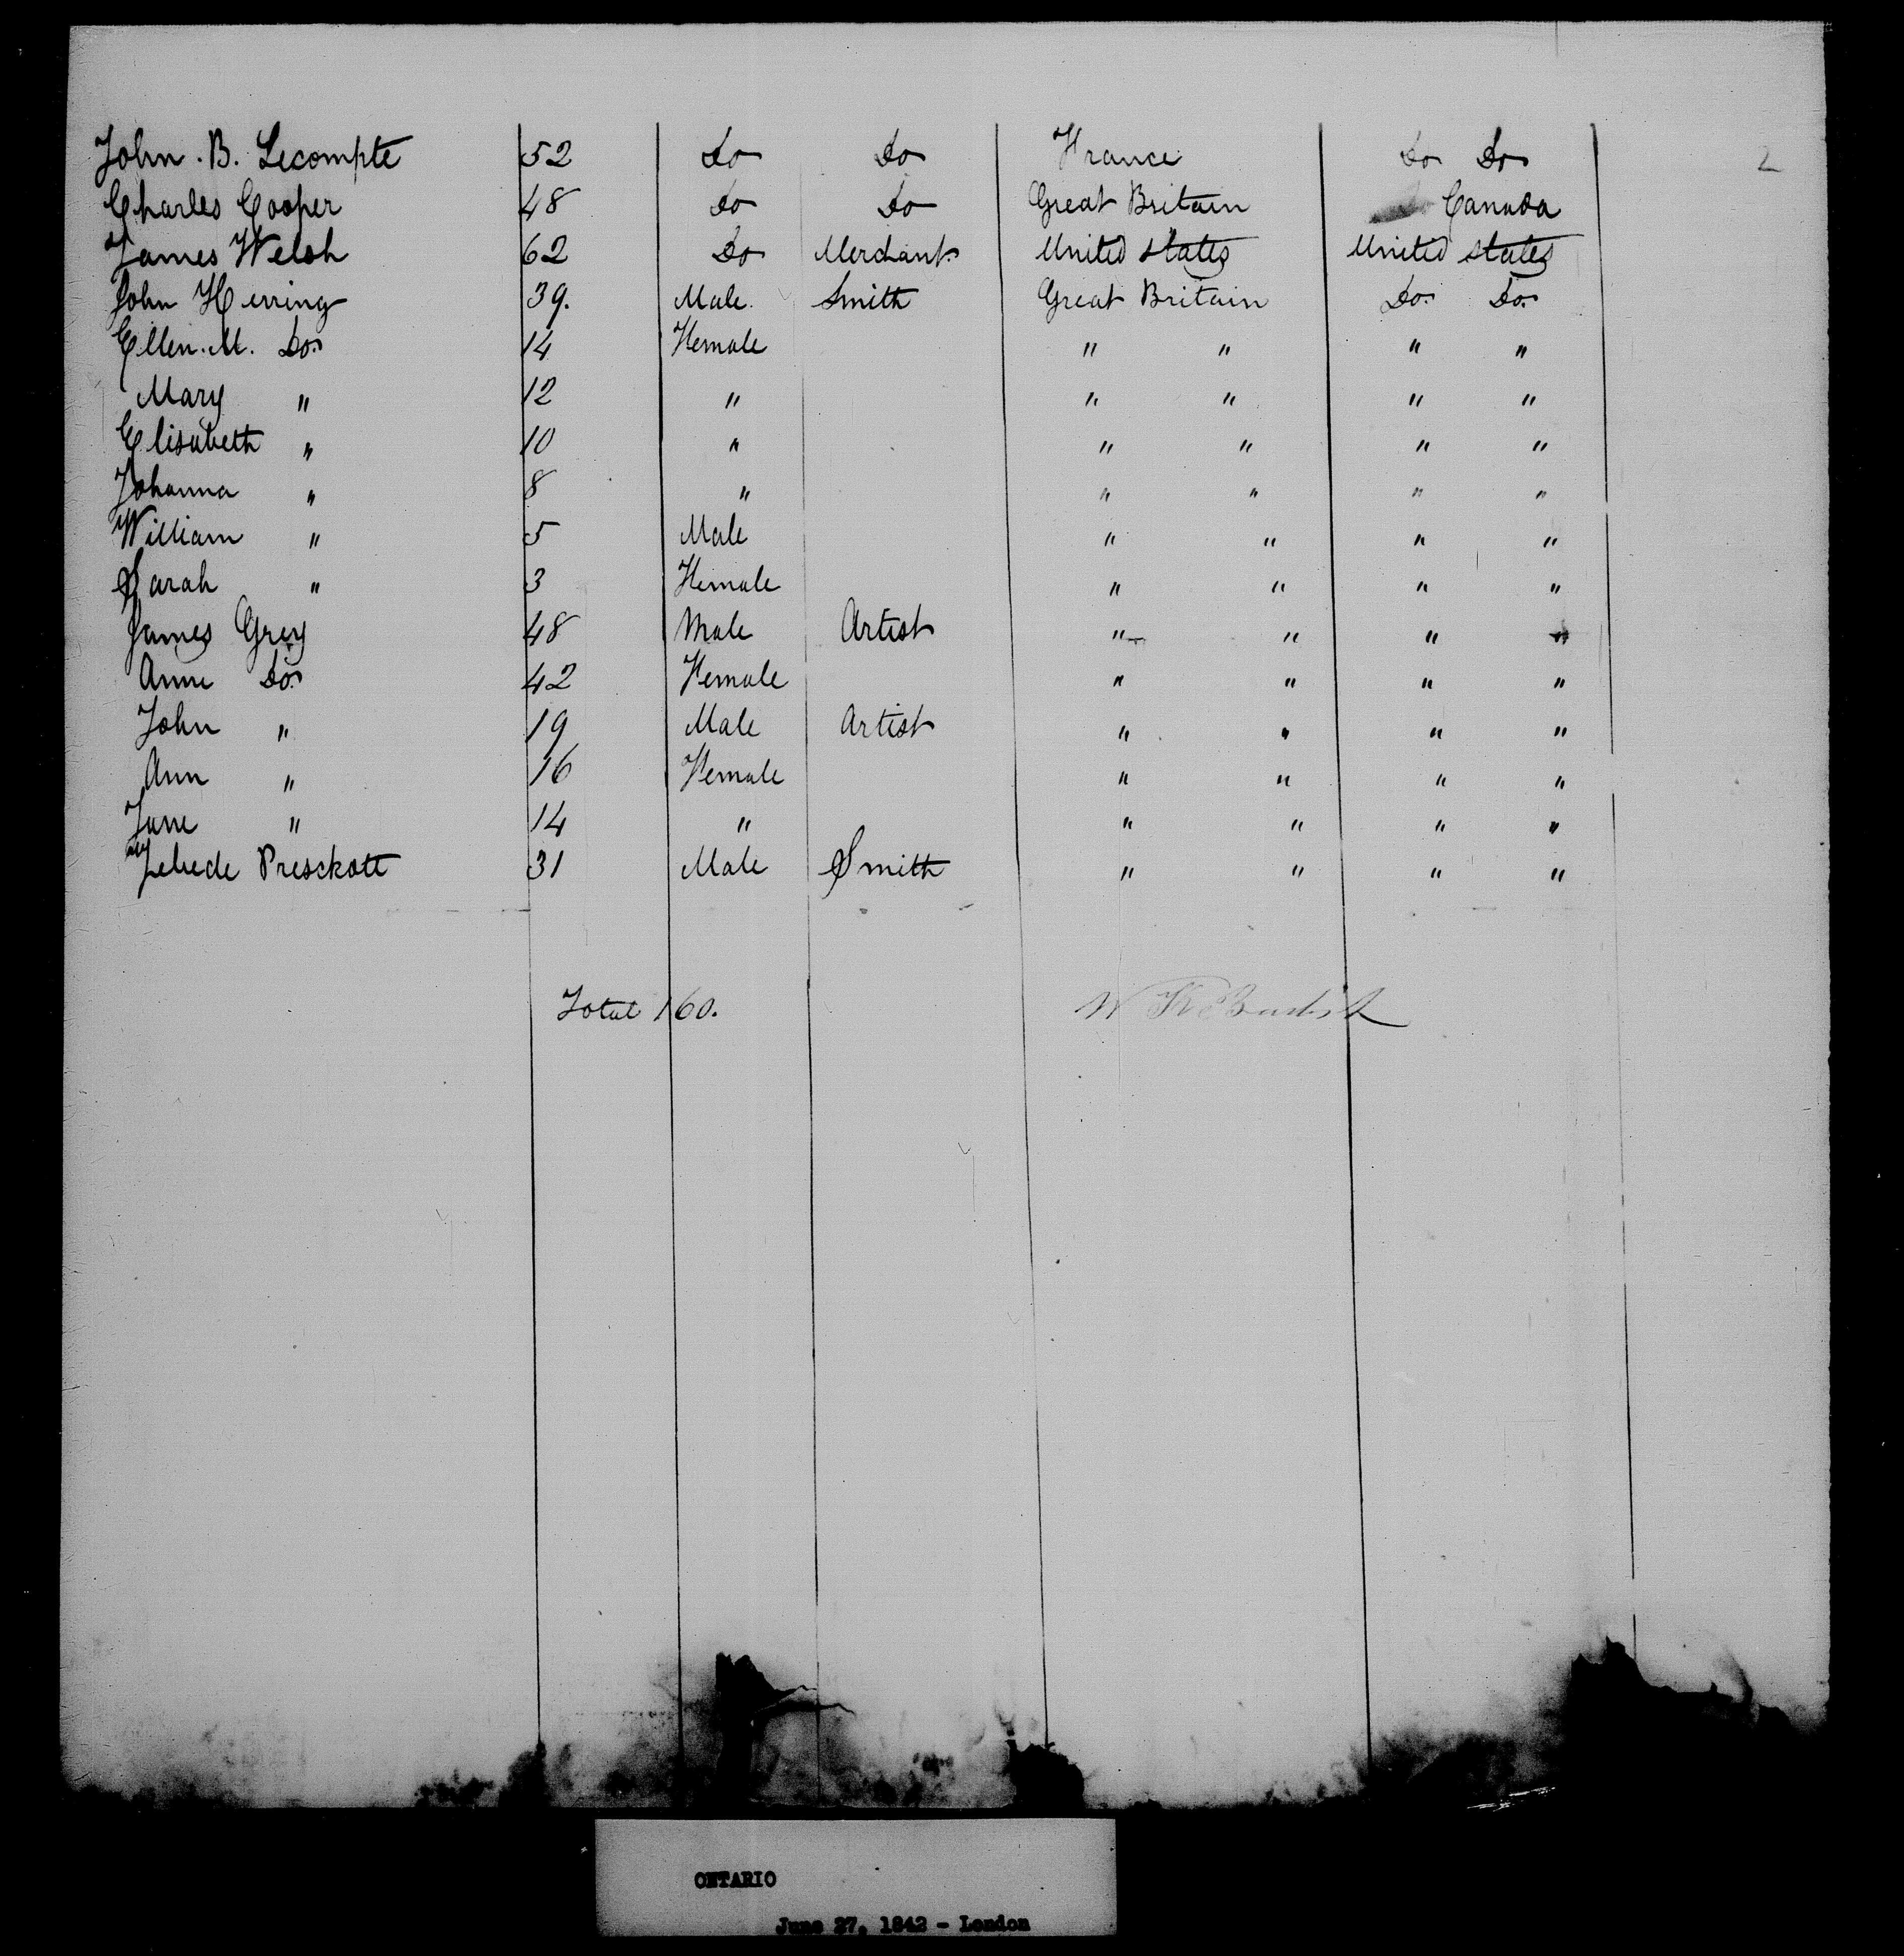 2
John . B. Lecompte 52 Do Do France Do Do
Charles Cooper 48 Do Do Great Britain Canada
James Welsh 62 Do Merchant United States United States
John Herring 39. Male Smith Great Britain Do Do
Ellen . M. Do 14 Female " " " "
Mary " 12 " " " " "
Elisabeth " 10 " " " " "
Johanna " 8 " " " " "
William " 5 Male " " " "
Sarah " 3 Female " " " "
James Grey 48 Male Artist " " " "
Anne Do 42 Female " " " "
John " 19 Male Artist " " " "
Ann " 16 Female " " " "
Jane " 14 " " " " "
Presckott 31 Male Smith " " " "
Total 160.
ONTARIO
June 27, 1842 - London